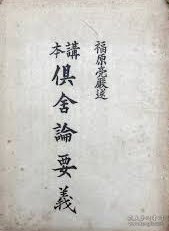 福原亮嚴述
講本
倶舍論要義